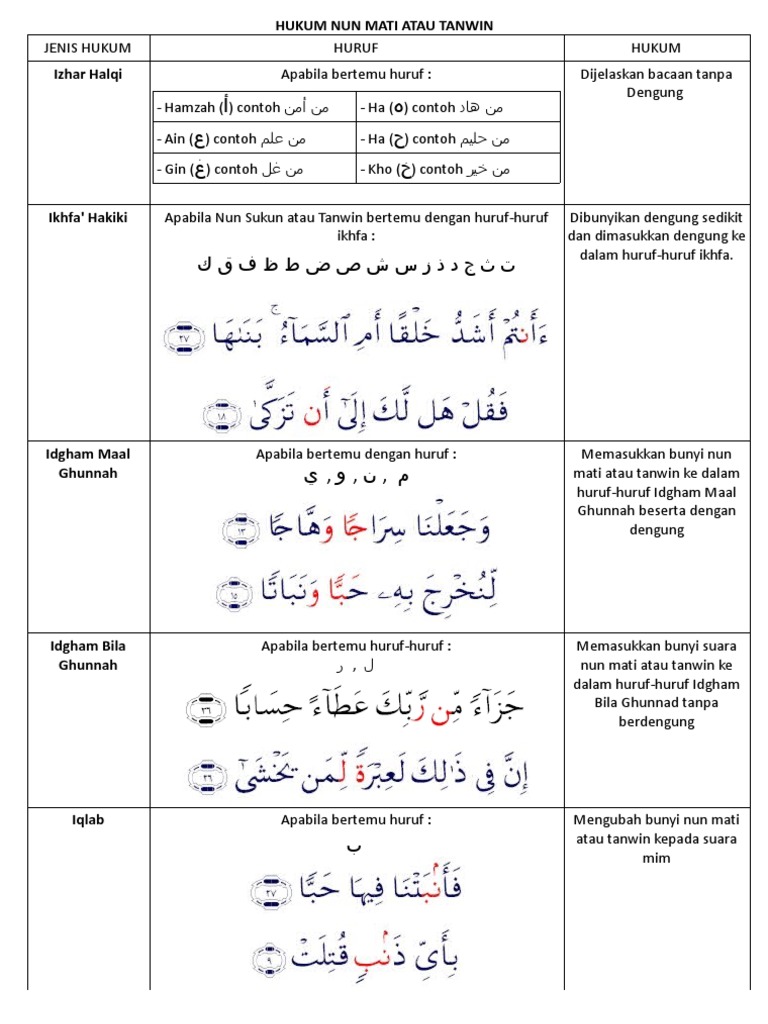 HUKUM NUN MATI ATAU TANWIN
JENIS HUKUM
HURUF
HUKUM
Izhar Halqi
Apabila bertemu huruf :
- Hamzah (أ) contoh من أمن
- Ha (ه) contoh من هاد
- Ain (ع) contoh من علم
- Ha (ح) contoh من حليم
- Gin (غ) contoh من غل
- Kho (خ) contoh من خير
Dijelaskan bacaan tanpa
Dengung
Ikhfa' Hakiki
Apabila Nun Sukun atau Tanwin bertemu dengan huruf-huruf
ikhfa :
ت ث ج د ذ ز س ش ص ض ط ظ ف ق ك
ءَأَنتُمْ أَشَدُّ خَلْقًا أَمِ ٱلسَّمَآءُ ۚ بَنَىٰهَا ٢٧
فَقُلْ هَل لَّكَ إِلَىٰٓ أَن تَزَكَّىٰ ١٨
Dibunyikan dengung sedikit
dan dimasukkan dengung ke
dalam huruf-huruf ikhfa.
Idgham Maal
Ghunnah
Apabila bertemu dengan huruf :
م , ن , و , ي
وَجَعَلْنَا سِرَاجًا وَهَّاجًا ١٣
لِّنُخْرِجَ بِهِۦ حَبًّا وَنَبَاتًا ١٥
Memasukkan bunyi nun
mati atau tanwin ke dalam
huruf-huruf Idgham Maal
Ghunnah beserta dengan
dengung
Idgham Bila
Ghunnah
Apabila bertemu huruf-huruf :
ل , ر
جَزَآءً مِّن رَّبِّكَ عَطَآءً حِسَابًا ٣٦
إِنَّ فِى ذَٰلِكَ لَعِبْرَةً لِّمَن يَخْشَىٰٓ ٢٦
Memasukkan bunyi suara
nun mati atau tanwin ke
dalam huruf-huruf Idgham
Bila Ghunnad tanpa
berdengung
Iqlab
Apabila bertemu huruf :
ب
فَأَنۢبَتْنَا فِيهَا حَبًّا ٢٧
بِأَىِّ ذَنۢبٍ قُتِلَتْ ٩
Mengubah bunyi nun mati
atau tanwin kepada suara
mim